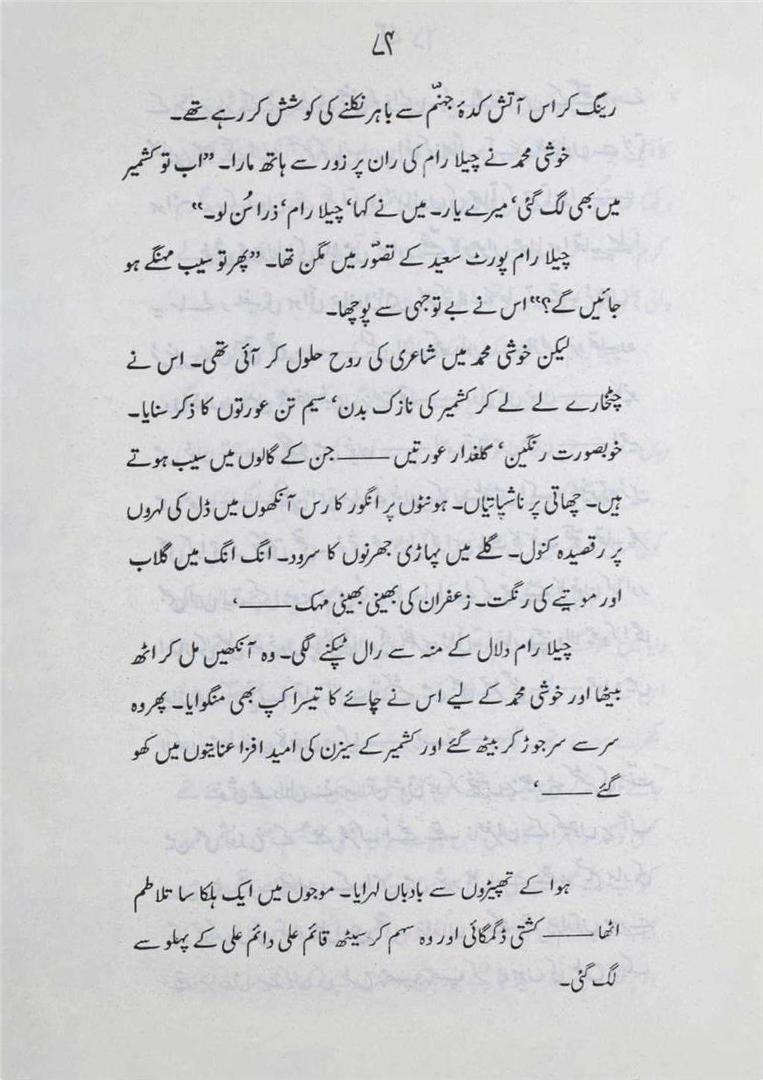 ۷۴
رینگ کر اس آتش کدۂ جہنّم سے باہر نکلنے کی کوشش کر رہے تھے۔
خوشی محمد نے چیلا رام کی ران پر زور سے ہاتھ مارا۔ ”اب تو کشمیر
میں بھی لگ گئی‘ میرے یار۔ میں نے کہا‘ چیلا رام‘ ذرا سُن لو۔“
چیلا رام پورٹ سعید کے تصوّر میں مگن تھا۔ ”پھر تو سیب مہنگے ہو
جائیں گے؟“ اس نے بے توجہی سے پوچھا۔
لیکن خوشی محمد میں شاعری کی روح حلول کر آئی تھی۔ اس نے
چٹخارے لے لے کر کشمیر کی نازک بدن‘ سیم تن عورتوں کا ذکر سنایا۔
خوبصورت رنگین‘ گلغدار عورتیں ——— جن کے گالوں میں سیب ہوتے
ہیں۔ چھاتی پر ناشپاتیاں۔ ہونٹوں پر انگور کا رس آنکھوں میں ڈل کی لہروں
پر رقصیدہ کنول۔ گلے میں پہاڑی جھرنوں کا سرود۔ انگ انگ میں گلاب
اور موتیے کی رنگت۔ زعفران کی بھینی بھینی مہک ———‘
چیلا رام دلال کے منہ سے رال ٹپکنے لگی۔ وہ آنکھیں مل کر اٹھ
بیٹھا اور خوشی محمد کے لیے اس نے چائے کا تیسرا کپ بھی منگوایا۔ پھر وہ
سر سے سر جوڑ کر بیٹھ گئے اور کشمیر کے سیزن کی امید افزا عنایتوں میں کھو
گئے ———‘
ہوا کے تھپیڑوں سے بادباں لہرایا۔ موجوں میں ایک ہلکا سا تلاطم
اٹھا ——— کشتی ڈگمگائی اور وہ سہم کر سیٹھ قائم علی دائم علی کے پہلو سے
لگ گئی۔